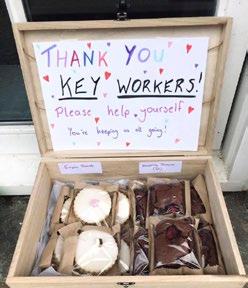 THANK YOU
KEY WORKERS!
Please help yourself
You're keeping us all going!